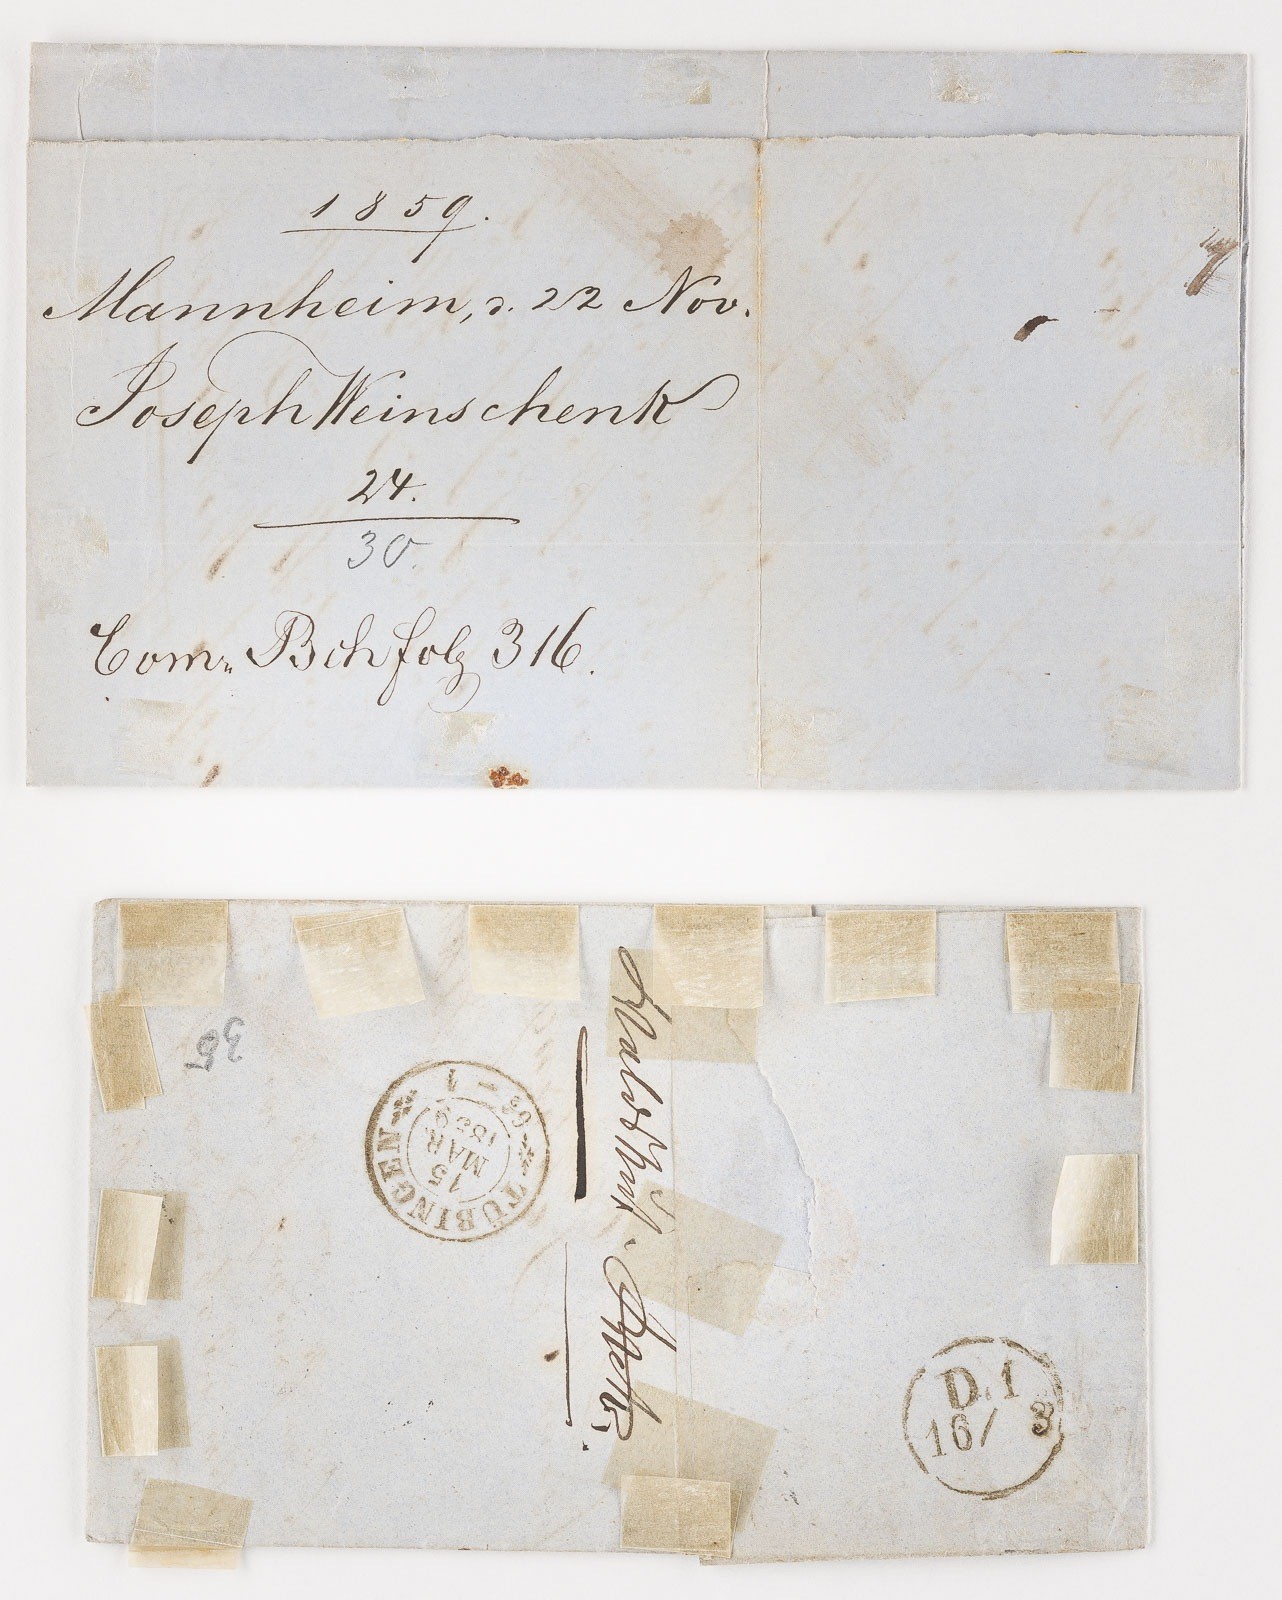 1859.
Mannheim, d. 22 Nov.
Joseph Weinschenk
24.
30.
Com. Bch folg 316.
36
TÜBINGEN
15
MAR.
1859
D. 1
16/ 3